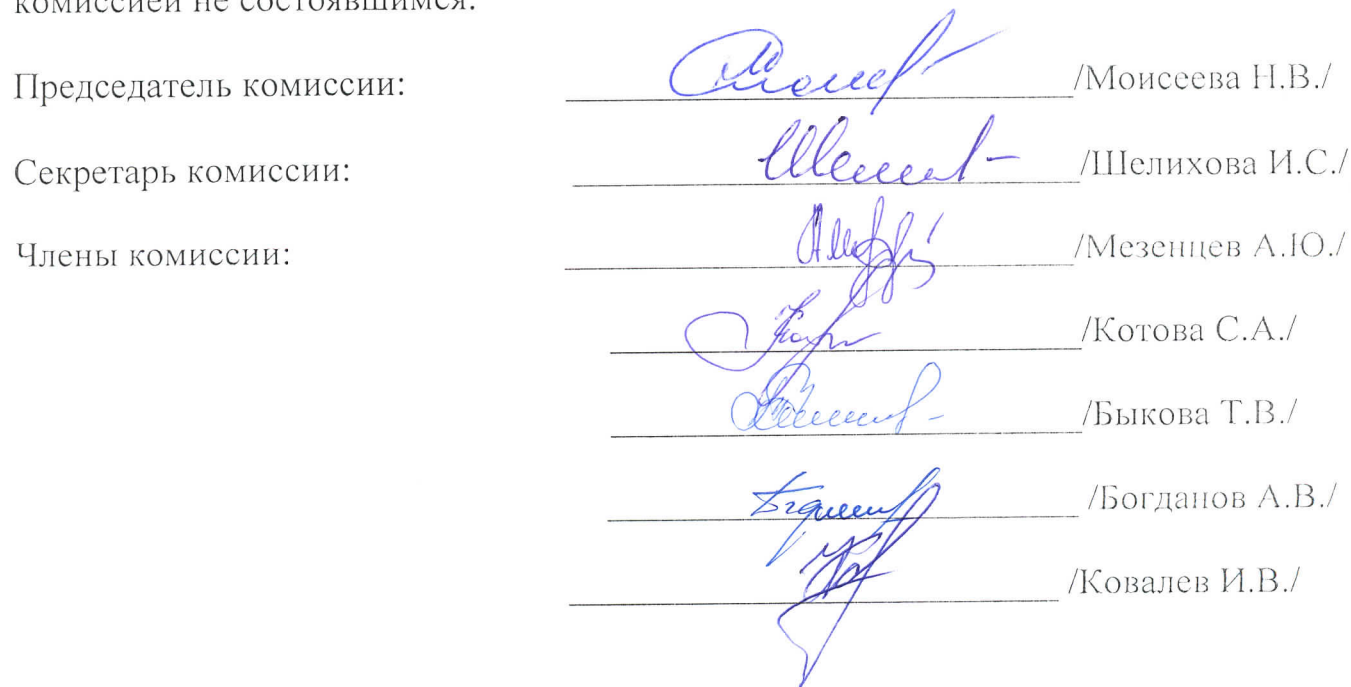 комиссией не состоявшимся.
Председатель комиссии: /Моисеева Н.В./
Секретарь комиссии: /Шелихова И.С./
Члены комиссии: /Мезенцев А.Ю./
/Котова С.А./
/Быкова Т.В./
/Богданов А.В./
/Ковалев И.В./